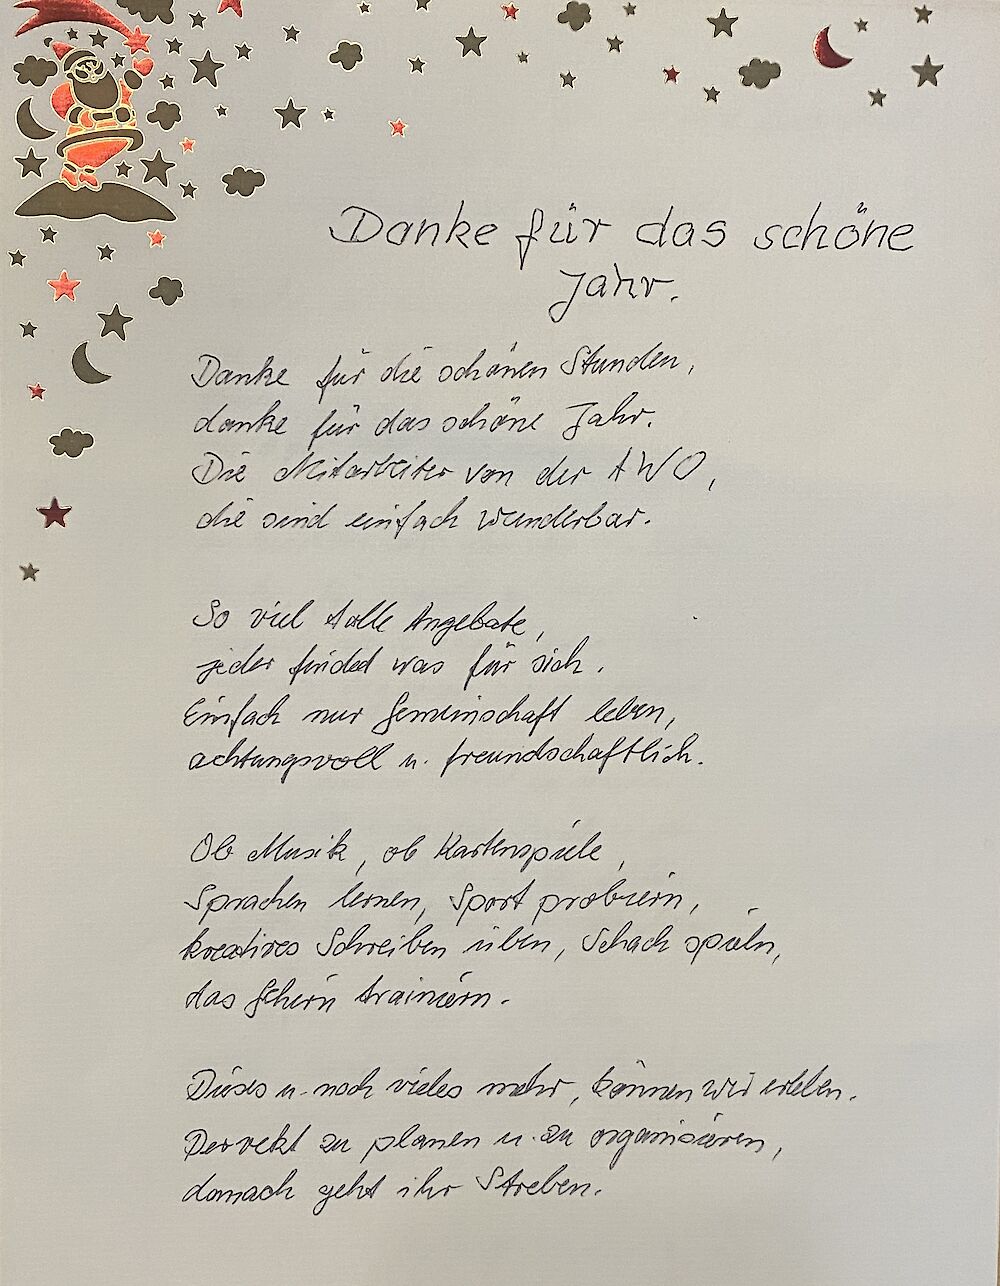 Danke für das schöne
Jahr.
Danke für die schönen Stunden,
danke für das schöne Jahr.
Die Mitarbeiter von der AWO,
die sind einfach wunderbar.
So viel tolle Angebote,
jeder findet was für sich.
Einfach nur Gemeinschaft leben,
achtungsvoll u. freundschaftlich.
Ob Musik, ob Kartenspiele,
Sprachen lernen, Sport probiern,
kreatives Schreiben üben, Schach spieln,
das Gehirn trainiern.
Dieses u. noch vieles mehr, können wir erleben.
Perfekt zu planen u. zu organisieren,
danach geht ihr Streben.